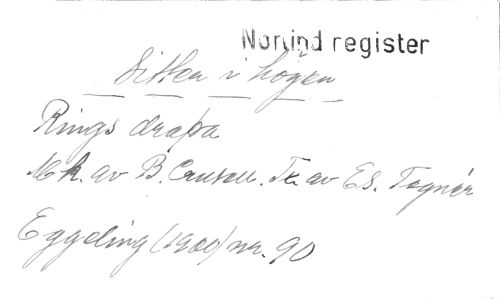 Norlind register
Sitter i högen
Rings drapa
Mk. av B. Crusell. Tx. av Es. Tegnér
Eggeling (1900) nr. 90